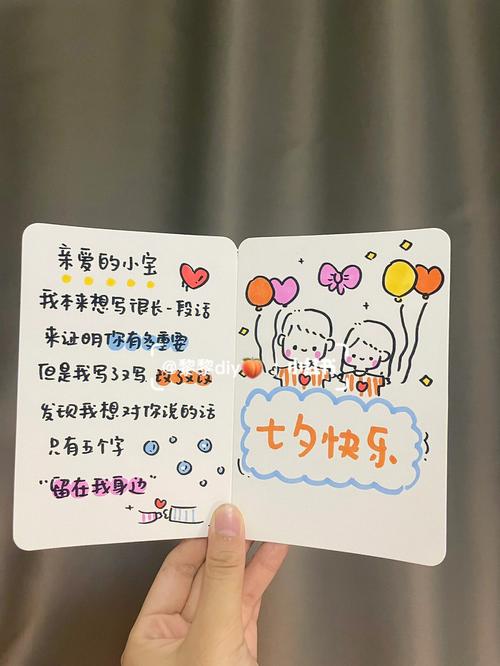 亲爱的小宝
我本来想写很长一段话
来证明你有多重要
但是我写了又写 改了又改
发现我想对你说的话
只有五个字
"留在我身边"
七夕快乐
@黎黎diy🍑
小红书